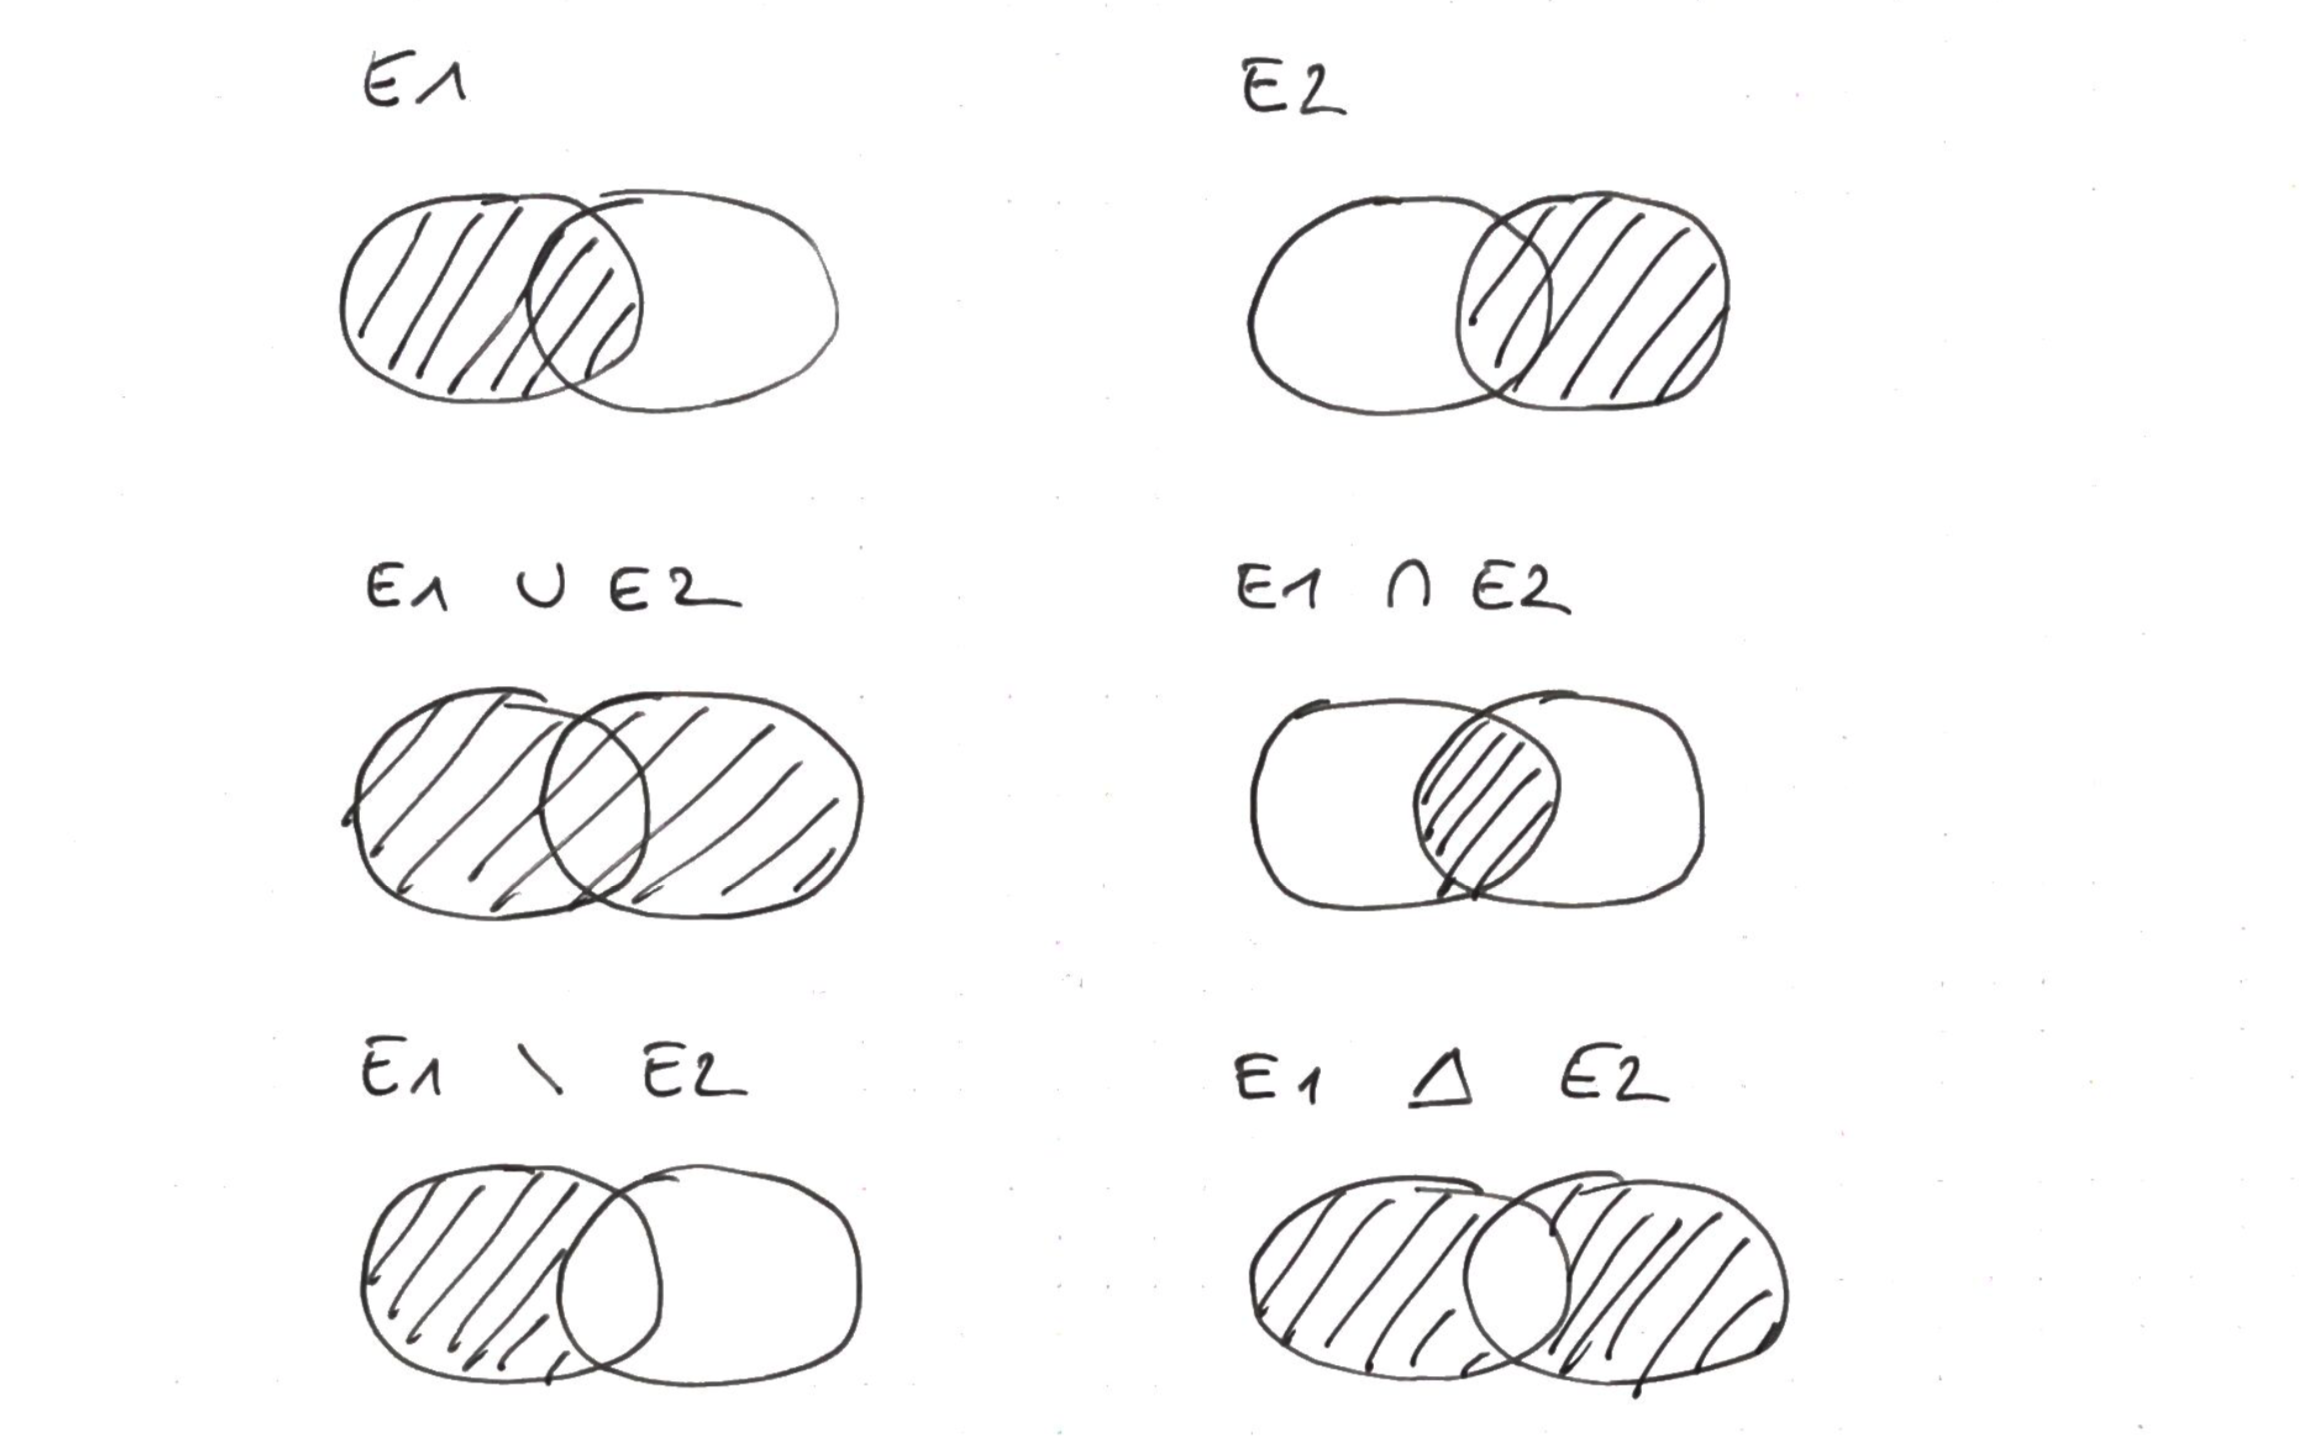 E1
E2
E1 ∪ E2
E1 ∩ E2
E1 \ E2
E1 Δ E2